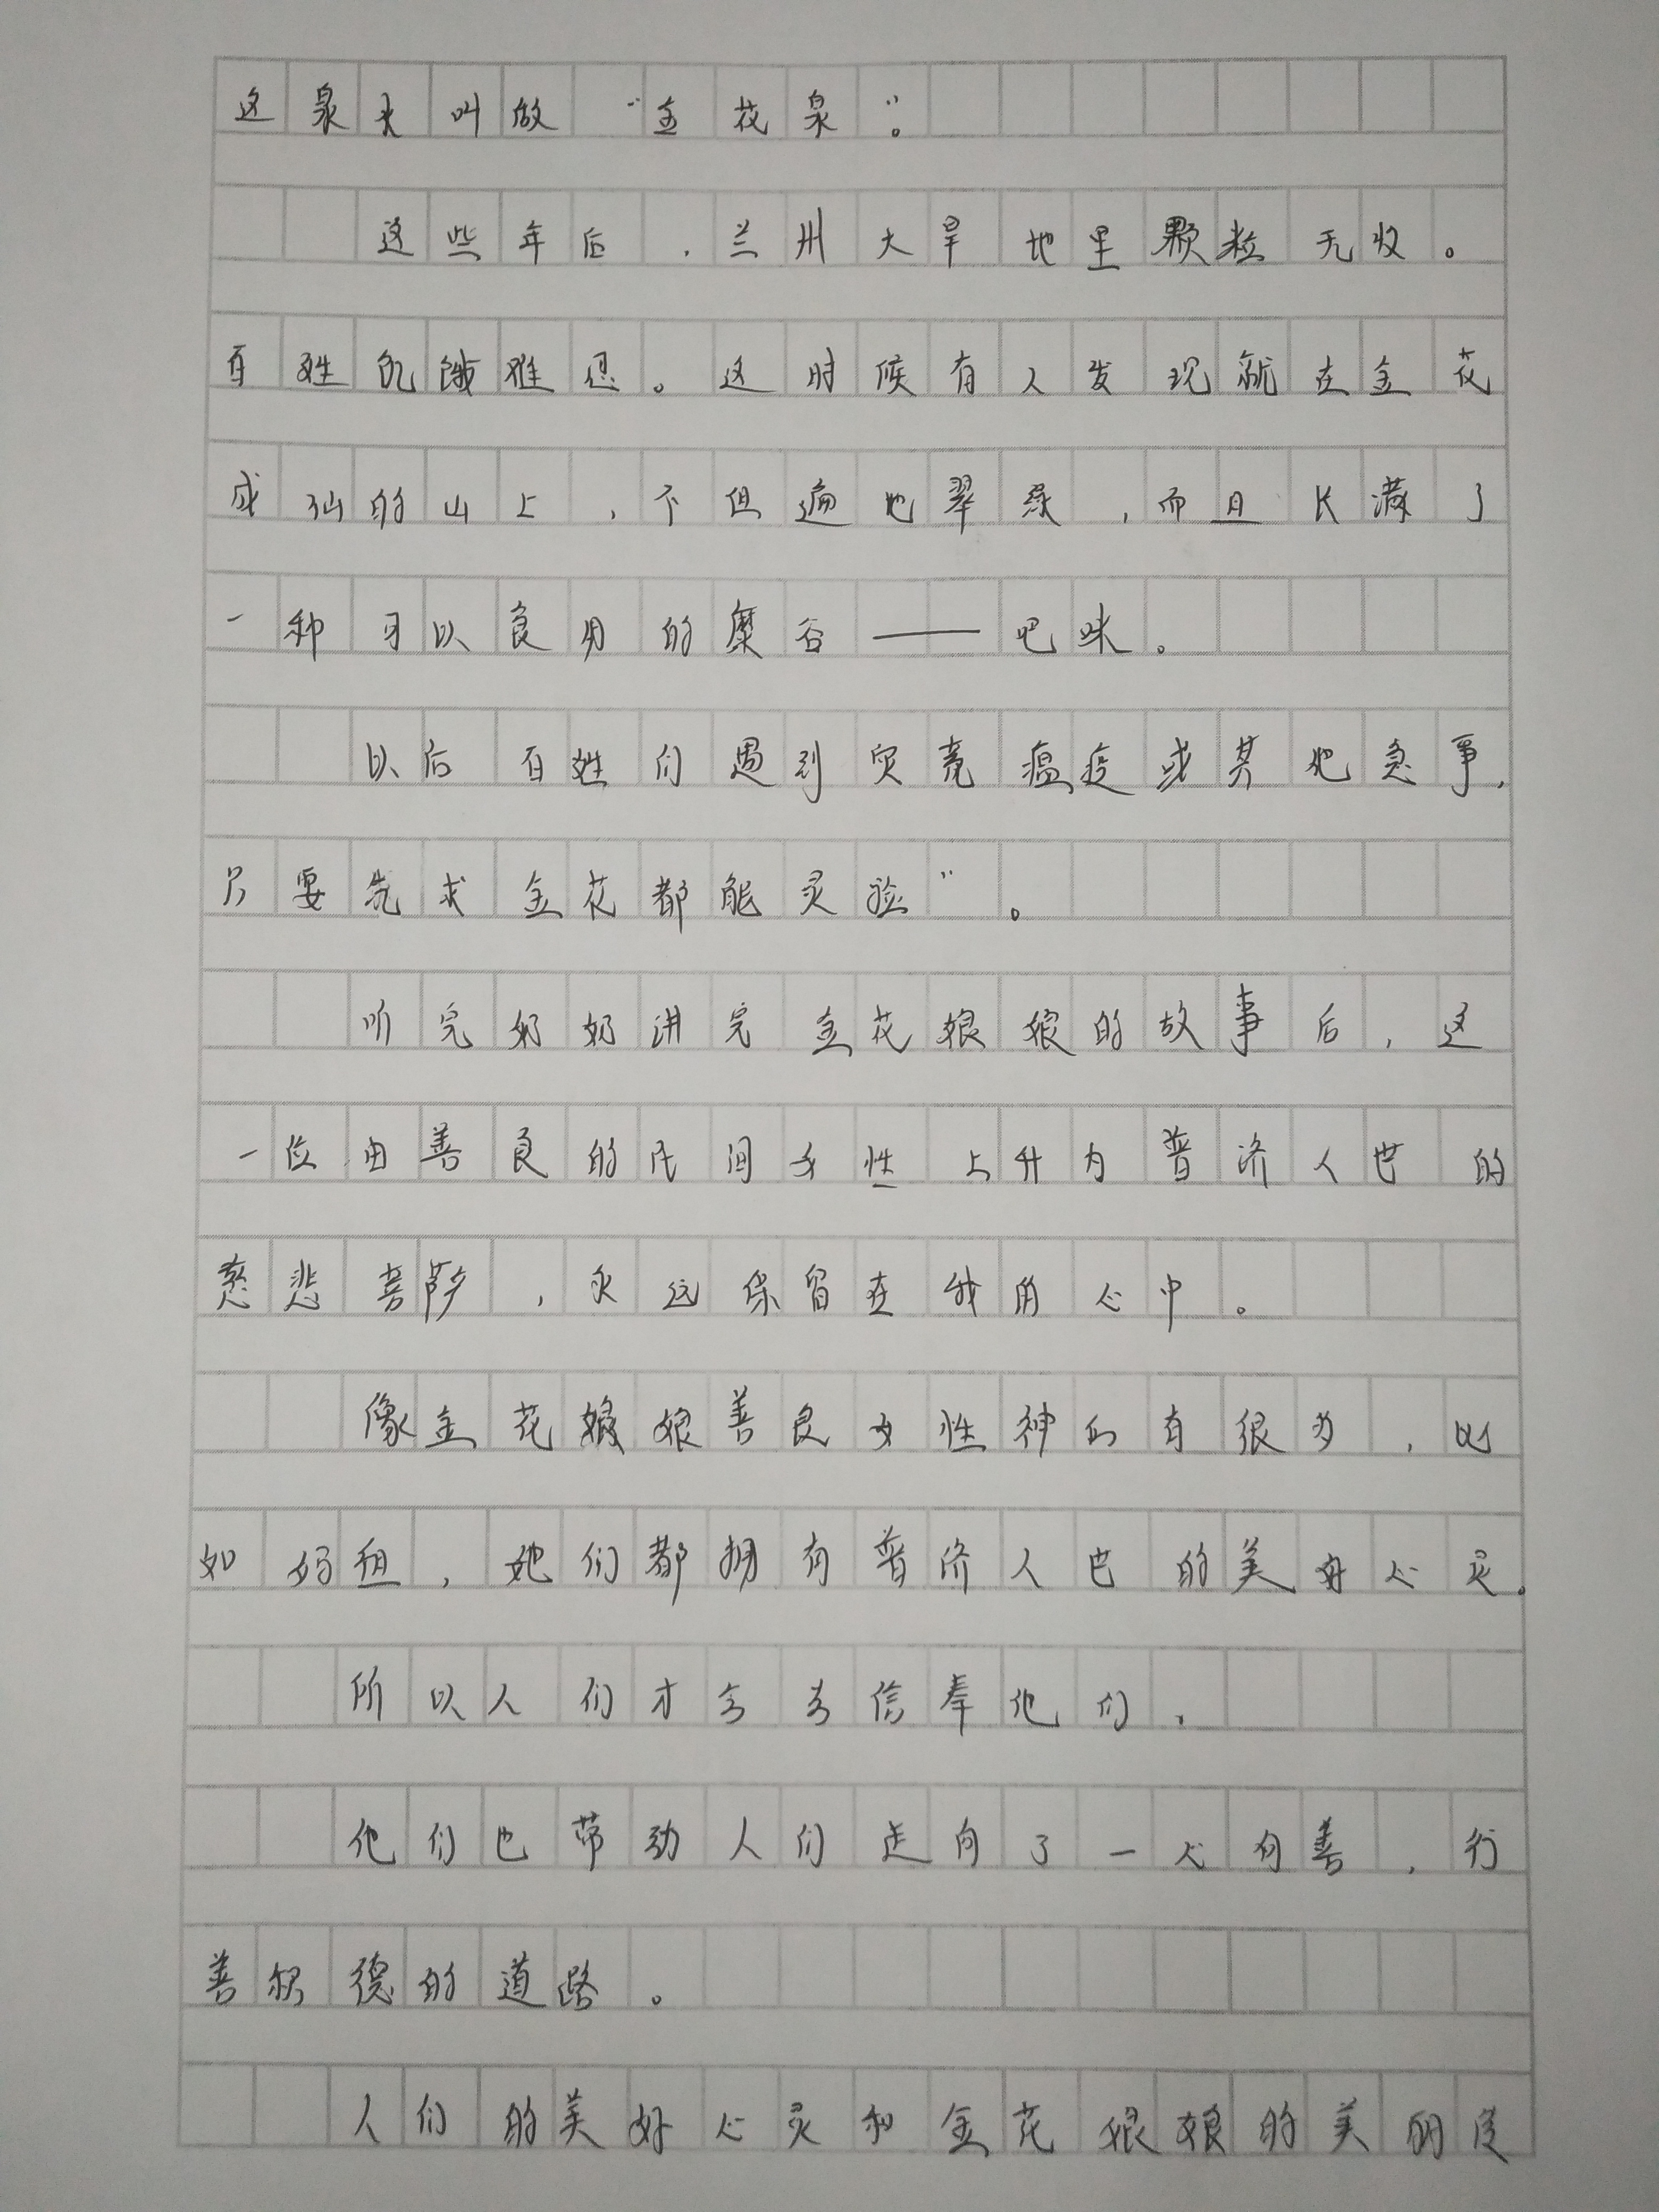 这泉水叫做“金花泉”。
这些年后,兰州大旱地里颗粒无收。
百姓饥饿难忍。这时候有人发现就在金花
成仙的山上,不但遍地翠绿,而且长满了
一种可以食用的糜谷——吧咪。
以后百姓们遇到灾荒瘟疫或其他急事,
只要先求金花都能灵验”。
听完奶奶讲完金花娘娘的故事后,这
一位由善良的民间女性上升为普济人世的
慈悲菩萨,永远保留在我的心中。
像金花娘娘善良女性神的有很多,比
如妈祖,她们都拥有普济人世的美好心灵。
所以人们才会去信奉他们。
他们也带动人们走向了一心向善,行
善积德的道路。
人们的美好心灵和金花娘娘的美丽